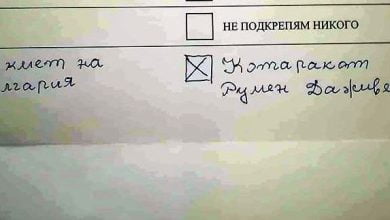 НЕ ПОДКРЕПЯМ НИКОГО
кмет на
лгария
Котаракът
Румен Да живе